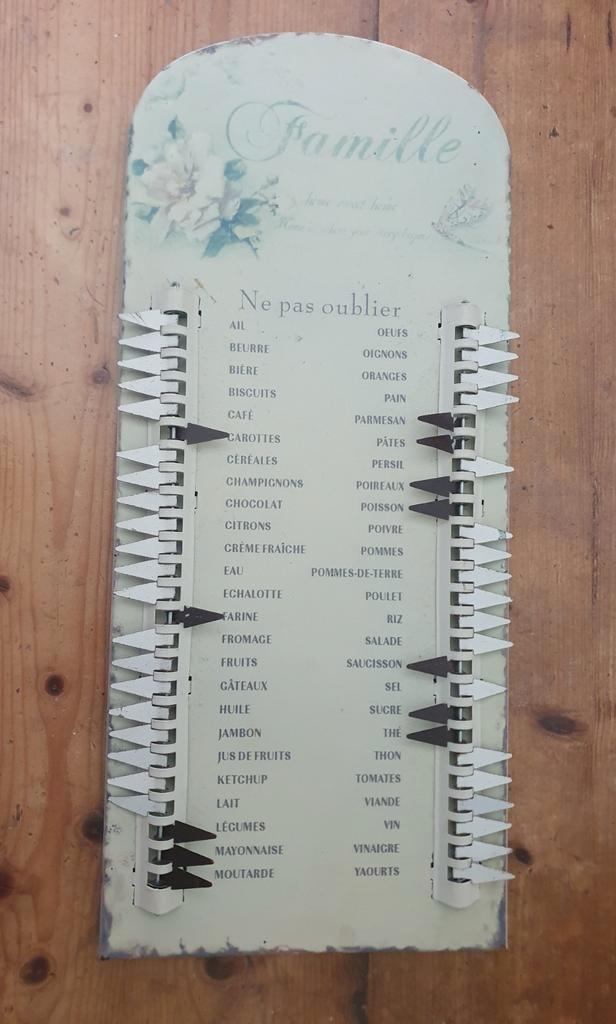 Famille
home sweet home
Home is where your story begins
Ne pas oublier
AIL
BEURRE
BIÈRE
BISCUITS
CAFÉ
CAROTTES
CÉRÉALES
CHAMPIGNONS
CHOCOLAT
CITRONS
CRÈME FRAÎCHE
EAU
ECHALOTTE
FARINE
FROMAGE
FRUITS
GÂTEAUX
HUILE
JAMBON
JUS DE FRUITS
KETCHUP
LAIT
LÉGUMES
MAYONNAISE
MOUTARDE
OEUFS
OIGNONS
ORANGES
PAIN
PARMESAN
PÂTES
PERSIL
POIREAUX
POISSON
POIVRE
POMMES
POMMES-DE-TERRE
POULET
RIZ
SALADE
SAUCISSON
SEL
SUCRE
THÉ
THON
TOMATES
VIANDE
VIN
VINAIGRE
YAOURTS